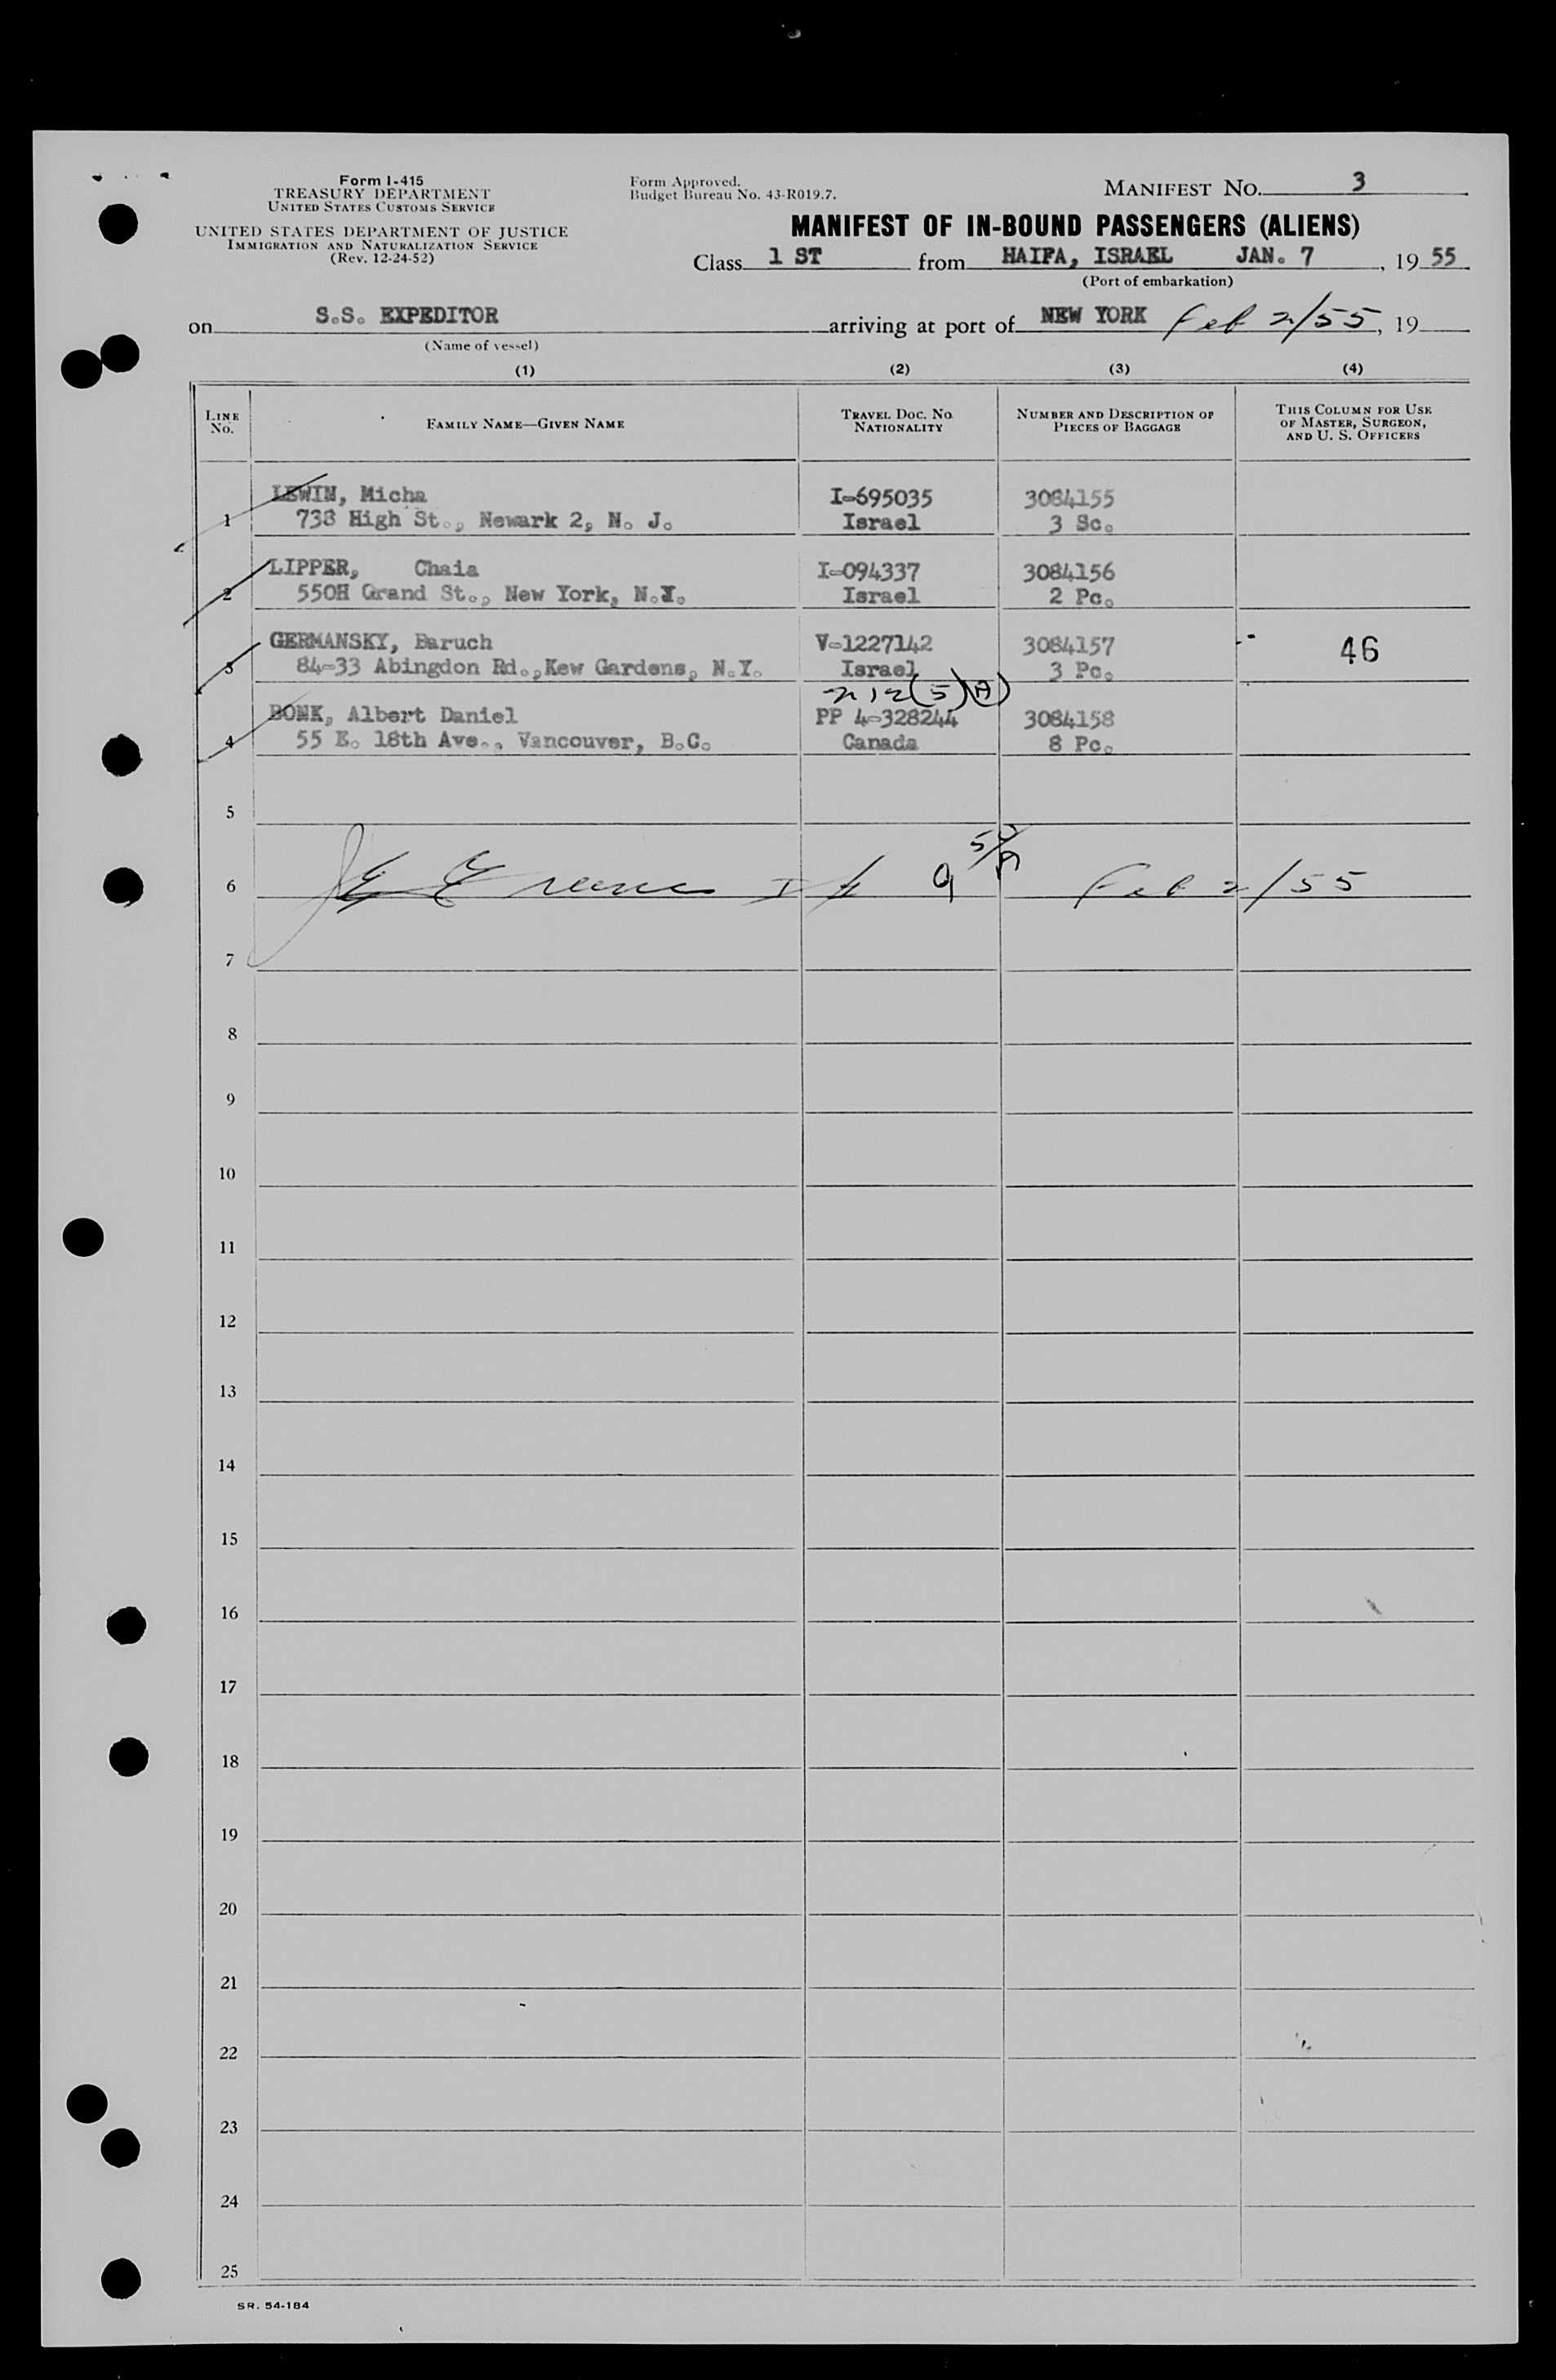 Form I-415
TREASURY DEPARTMENT
UNITED STATES CUSTOMS SERVICE
UNITED STATES DEPARTMENT OF JUSTICE
IMMIGRATION AND NATURALIZATION SERVICE
(Rev. 12-24-52)
Form Approved.
Budget Bureau No. 43-R019.7.
MANIFEST NO. 3
MANIFEST OF IN-BOUND PASSENGERS (ALIENS)
Class 1 ST from HAIFA, ISRAEL JAN. 7, 19 55
(Port of embarkation)
on S.S. EXPEDITOR arriving at port of NEW YORK Feb 2/55, 19
(Name of vessel)
(1) (2) (3) (4)
LINE NO. FAMILY NAME—GIVEN NAME TRAVEL DOC. NO. NATIONALITY NUMBER AND DESCRIPTION OF PIECES OF BAGGAGE THIS COLUMN FOR USE OF MASTER, SURGEON, AND U. S. OFFICERS
LEWIN, Micha I-695035 3084155
1 738 High St., Newark 2, N. J. Israel 3 Sc.
LIPPER, Chaia I-094337 3084156
2 550H Grand St., New York, N.Y. Israel 2 Pc.
GERMANSKY, Baruch V-1227142 3084157 46
3 84-33 Abingdon Rd.,Kew Gardens, N.Y. Israel 3 Pc.
212(5)(A)
BONK, Albert Daniel PP 4-328244 3084158
4 55 E. 18th Ave., Vancouver, B.C. Canada 8 Pc.
5
6 Feb 2/55
7
8
9
10
11
12
13
14
15
16
17
18
19
20
21
22
23
24
25
SR. 54-184